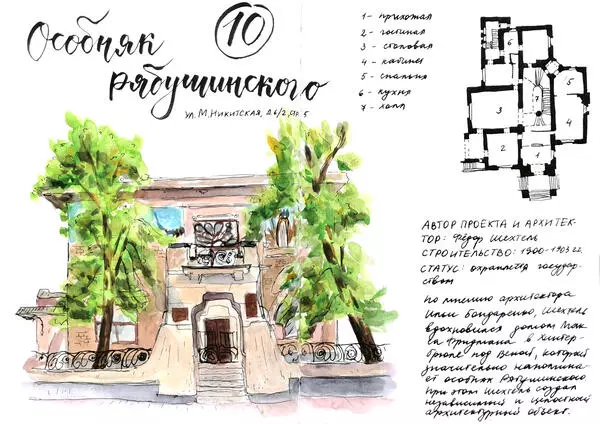 Особняк
Рябушинского
10
ул. М. Никитская, д. 6/2, стр. 5
1 - прихожая
2 - гостиная
3 - столовая
4 - кабинет
5 - спальня
6 - кухня
7 - холл
6
5
7
3
4
2
1
АВТОР ПРОЕКТА И АРХИТЕК-
ТОР: Фёдор Шехтель
СТРОИТЕЛЬСТВО: 1900-1903 гг.
СТАТУС: охраняется государ-
ством
По мнению архитектора
Ильи Бондаренко, Шехтель
вдохновился домом Мак
са Фридмана в Хинтер-
брюле под Веной, который
значительно напомина-
ет особняк Рябушинского
При этом Шехтель создал
независимый и целостный
архитектурный объект.